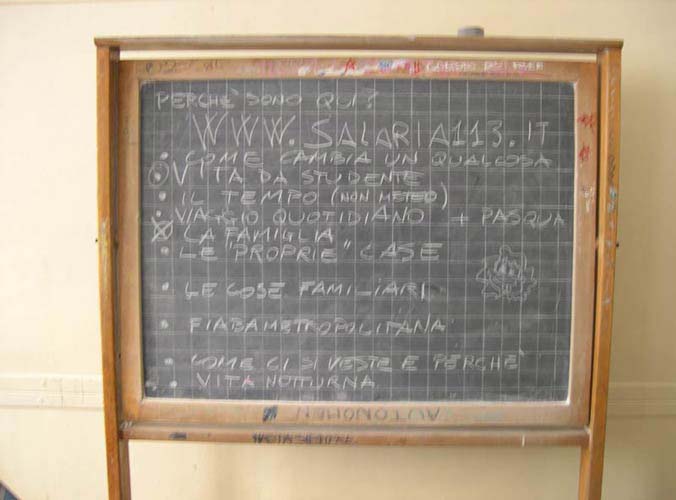 PERCHÈ SONO QUI?
WWW.SALARIA113.IT
• COME CAMBIA UN QUALCOSA
• VITA DA STUDENTE
• IL TEMPO (NON METEO)
• VIAGGIO QUOTIDIANO + PASQUA
LA FAMIGLIA
• LE "PROPRIE" CASE
• LE COSE FAMILIARI
• FIABA METROPOLITANA
• COME CI SI VESTE E PERCHÈ
• VITA NOTTURNA
AUTONOMEN